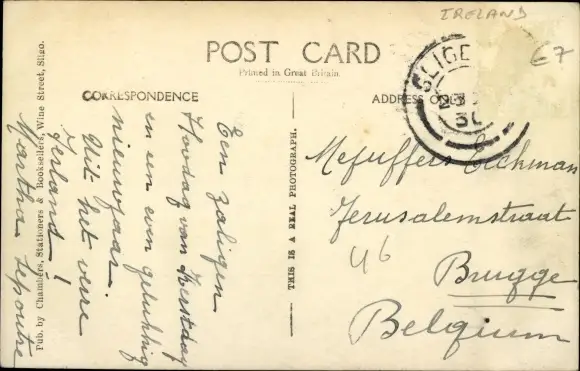 IRELAND
67
POST CARD
Printed in Great Britain.
CORRESPONDENCE
ADDRESS ONLY
SLIGE
Een zaligen
Hoogdag van Kerstdag
en een even gelukkig
nieuwjaar.
Uit het verre
Ierland!
Martha Lepoutre
Pub. by Chambers, Stationers & Booksellers, Wine Street, Sligo.
THIS IS A REAL PHOTOGRAPH.
Mejuffers Eeckman
Jerusalemstraat
46
Brugge
Belgium